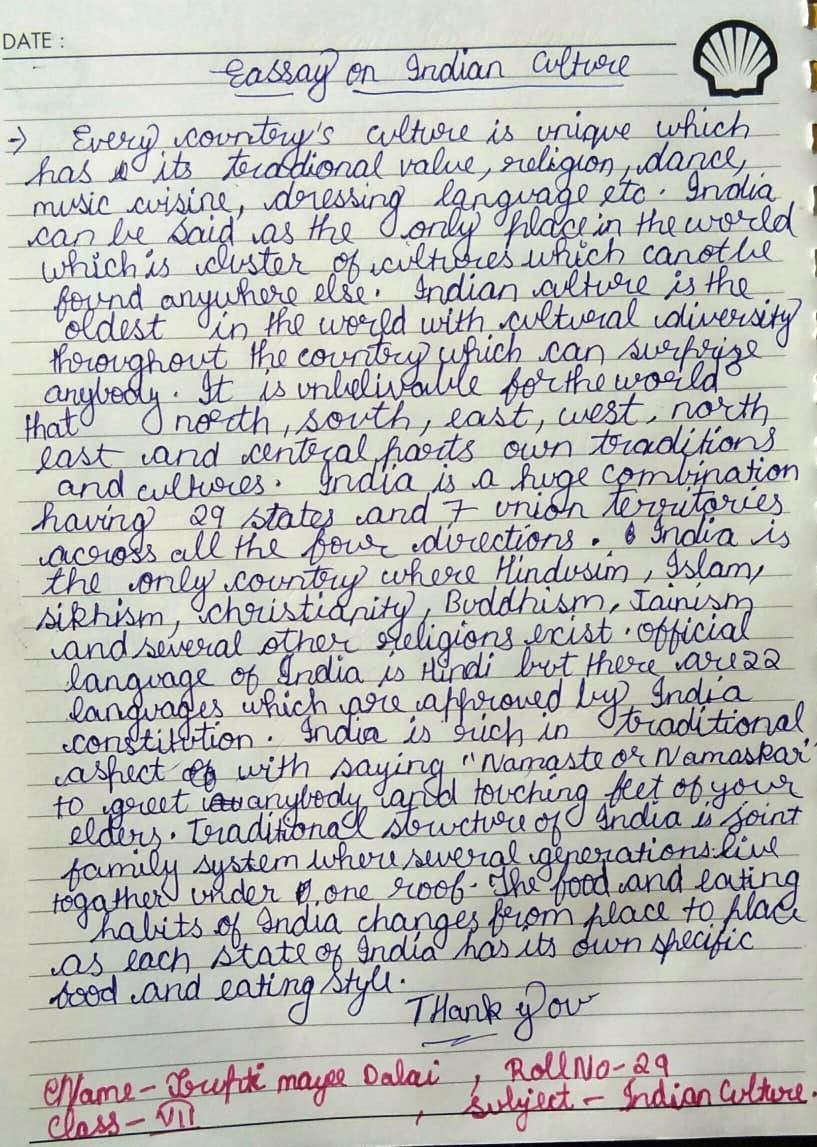 DATE :
Eassay on Indian Culture
→ Every country's culture is unique which
has its tradional value, religion, dance,
music cuisine, dressing language etc. India
can be said as the only place in the world
which is cluster of cultures which canot be
found anywhere else. Indian culture is the
oldest in the world with cultural diversity
throughout the country which can surprize
anybody. It is unbelivable for the world
that north, south, east, west, north
east and central parts own traditions
and cultures. India is a huge combination
having 29 states and 7 union territories
across all the four directions. India is
the only country where Hindusim, Islam,
sikhism, christianity, Buddhism, Jainism
and several other religions exist. official
language of India is Hindi but there are 22
languages which are approved by India
constitution. India is rich in traditional
aspect with saying "Namaste or Namaskar"
to greet anybody and touching feet of your
elders. Traditional structure of India is joint
family system where several generations live
togather under one roof. The food and eating
habits of India changes from place to place
as each state of India has its own specific
food and eating style.
THank you
Name - mayee Dalai , Roll No - 29
Class - VII , Subject - Indian Culture.